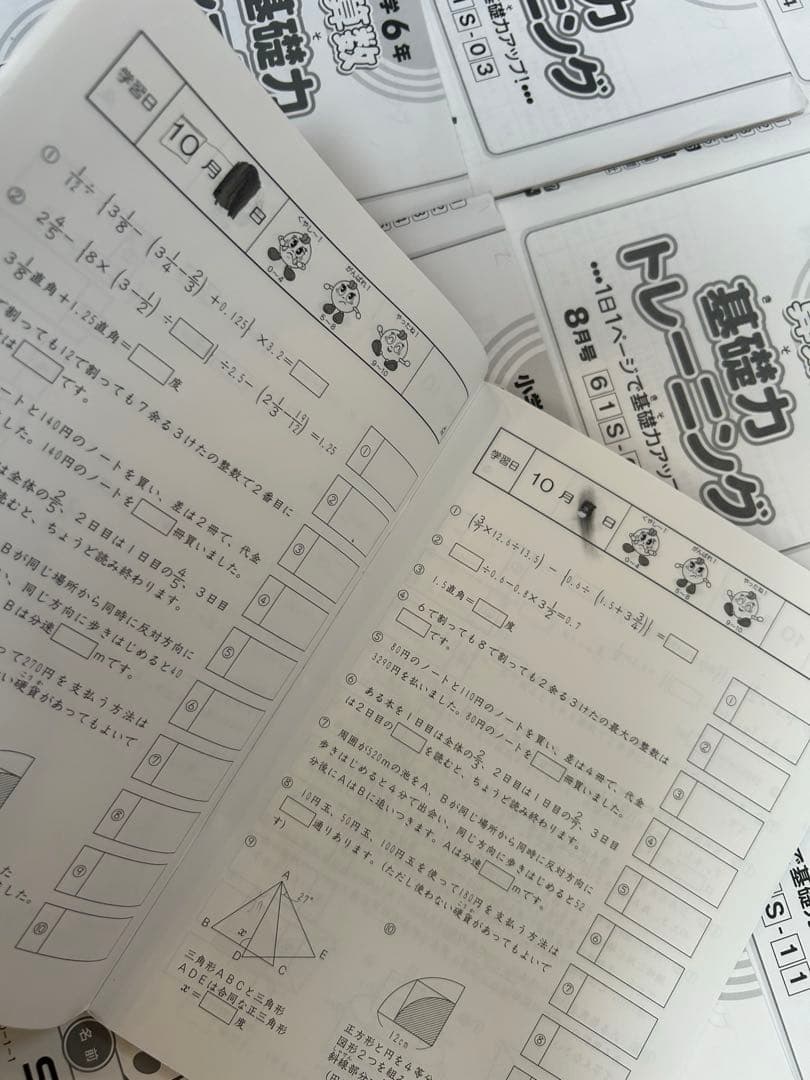 学6年
算数
基礎力
1S-03
基礎力アップ!•••
トレーニング
•••1日1ページで基礎力アッ
基礎力
トレーニング
8月号
61S-
小学
学習日
10月
日
くやし〜!
0〜4
がんばれ!
5〜8
やったね!
9〜10
① 1/12÷{3 1/8-(3 1/4-2/3)+0.125}×3.2=□
② 2 4/5-{8×(3-1/2)÷□}÷2.5-(2 1/3-19/12)=1.25
3 1/8直角+1.25直角=□度
て割っても12で割っても7余る3けたの整数で2番目に
は□です。
ノートと140円のノートを買い、差は2冊で、代金
ました。140円のノートを□冊買いました。
は全体の2/5、2日目は1日目の4/5、3日目
読むと、ちょうど読み終わります。
Bが同じ場所から同時に反対方向に
い、同じ方向に歩きはじめると40
Bは分速□mです。
って270円を支払う方法は
い硬貨があってもよいで
した。
①
②
③
④
⑤
⑥
⑦
⑧
⑨
⑩
学習日
10月
日
くやし〜!
0〜4
がんばれ!
5〜8
やったね!
9〜10
① (3/7×12.6÷13.5)-{0.6÷(1.5+3 3/4)}=□
② □÷0.6-0.8×3 1/2=0.7
③ 1.5直角=□度
④ 6で割っても8で割っても2余る3けたの最大の整数は
□です。
⑤ 80円のノートと110円のノートを買い、差は4冊で、代金
3290円を払いました。80円のノートを□冊買いました。
⑥ ある本を1日目は全体の2/5、2日目は1日目の2/3、3日目
は2日目の□を読むと、ちょうど読み終わります。
⑦ 周囲が520mの池をA、Bが同じ場所から同時に反対方向に
歩きはじめると4分で出会い、同じ方向に歩きはじめると52
分後にAはBに追いつきます。Aは分速□mです。
⑧ 10円玉、50円玉、100円玉を使って180円を支払う方法は
□通りあります。(ただし使わない硬貨があってもよいで
す)
⑨
A
27°
B
x
D
C
E
三角形ABCと三角形
ADEは合同な正三角形
x=□度
⑩
12cm
正方形と円を4等分
図形2つを組み
斜線部分
①
②
③
④
⑤
⑥
⑦
⑧
S-11
名前